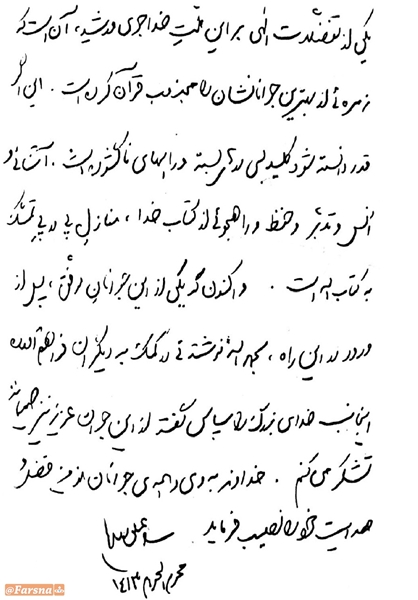 یکی از تفضلات الهی بر این ملت خداجوی و رشید، آن است که
زمره‌ئی از بهترین جوانانشان را مجذوب قرآن کرده است. این اگر
قدر دانسته شود کلید بسی درهای بسته و راههای ناگشوده است. آشنائی و
انس و تدبر و حفظ و راهجوئی از کتاب خدا، منازل پی در پی تمسک
به کتاب اله است. و اکنون که یکی از این جوانان موفق، پس از
ورود در این راه، بحمد الله نوشته‌ئی در کمک به دیگران فراهم آورده
اینجانب خدای بزرگ را سپاس گفته از این جوان عزیز نیز صمیمانه
تشکر می‌کنم. خداوند به وی و همه‌ی جوانان مؤمن فضل و
هدایت خود را نصیب فرماید
سید علی خامنه‌ای
محرم الحرام ۱۴۱۳
@Farsna